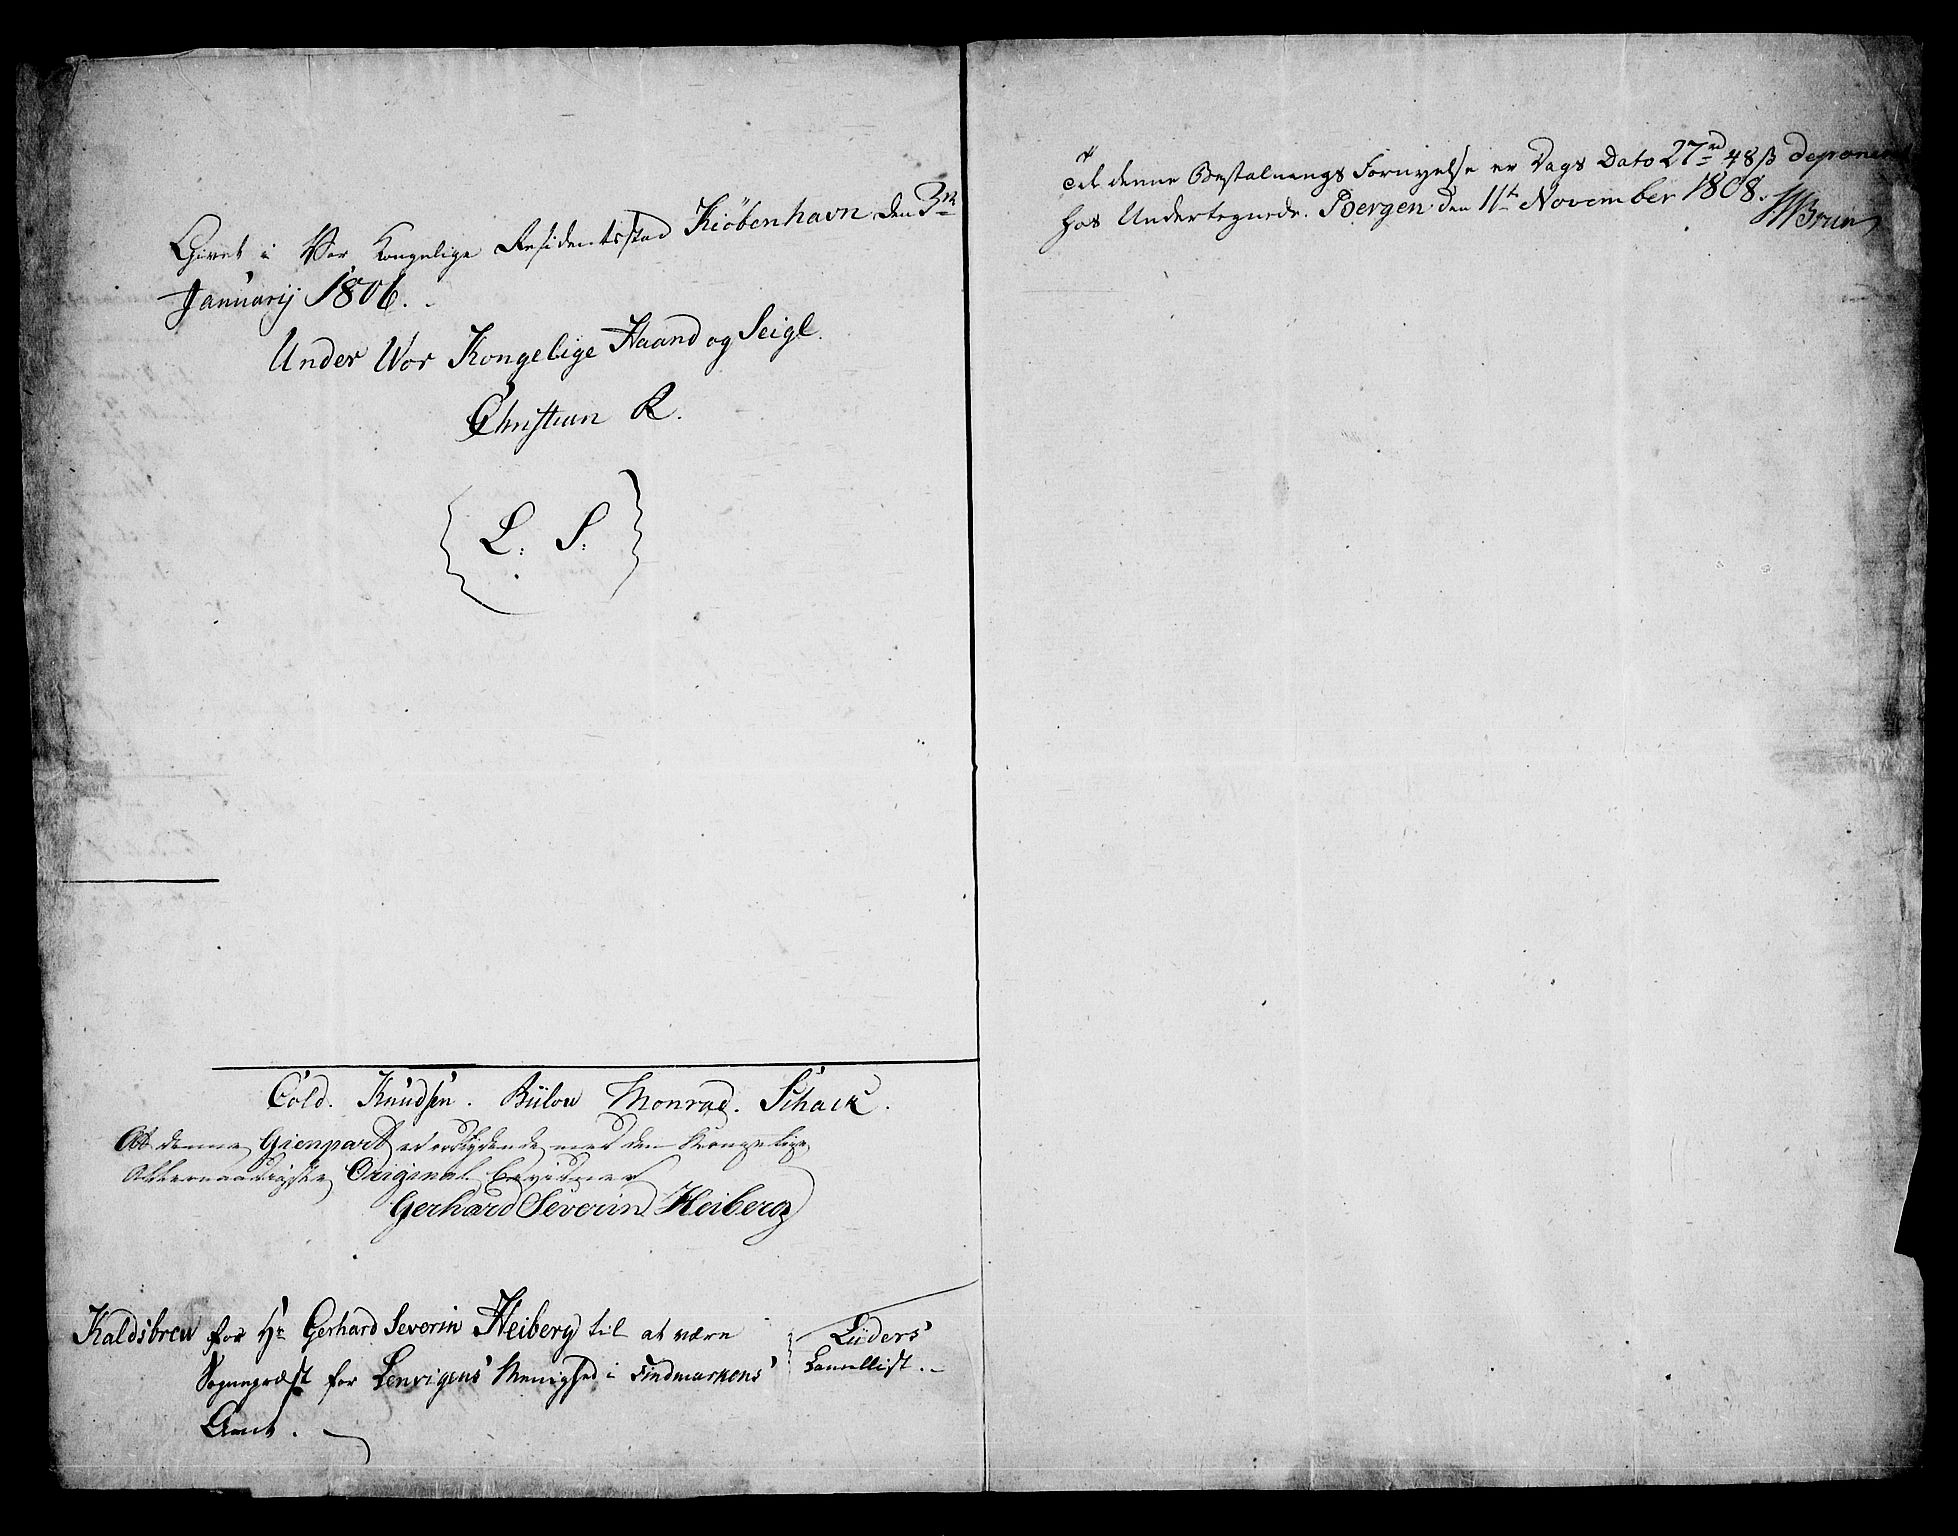 Givet i Vor Kongelige Residentsstad Kiöbenhavn den 3die
Januarij 1806.
Under Vor Kongelige Haand og Seigl.
Christian R.
L: S:
Cold. Knudsen. Bülow Monrad. Schack.
At denne Gienpart er eenslydende med den Kongelige
Allernaadigste Original bevidner
Gerhard Severin Heiberg
Kaldsbrev for Hr Gerhard Severin Heiberg til at være
Sognepræst for Lenvigens Menighed i Findmarkens
Amt.
Lüders
Cancellist.
Til denne Bestalnings Fornyelse er Dags Dato 27rd 48 ß deponeret
hos Undertegnede. Bergen den 11te November 1808.
Brun